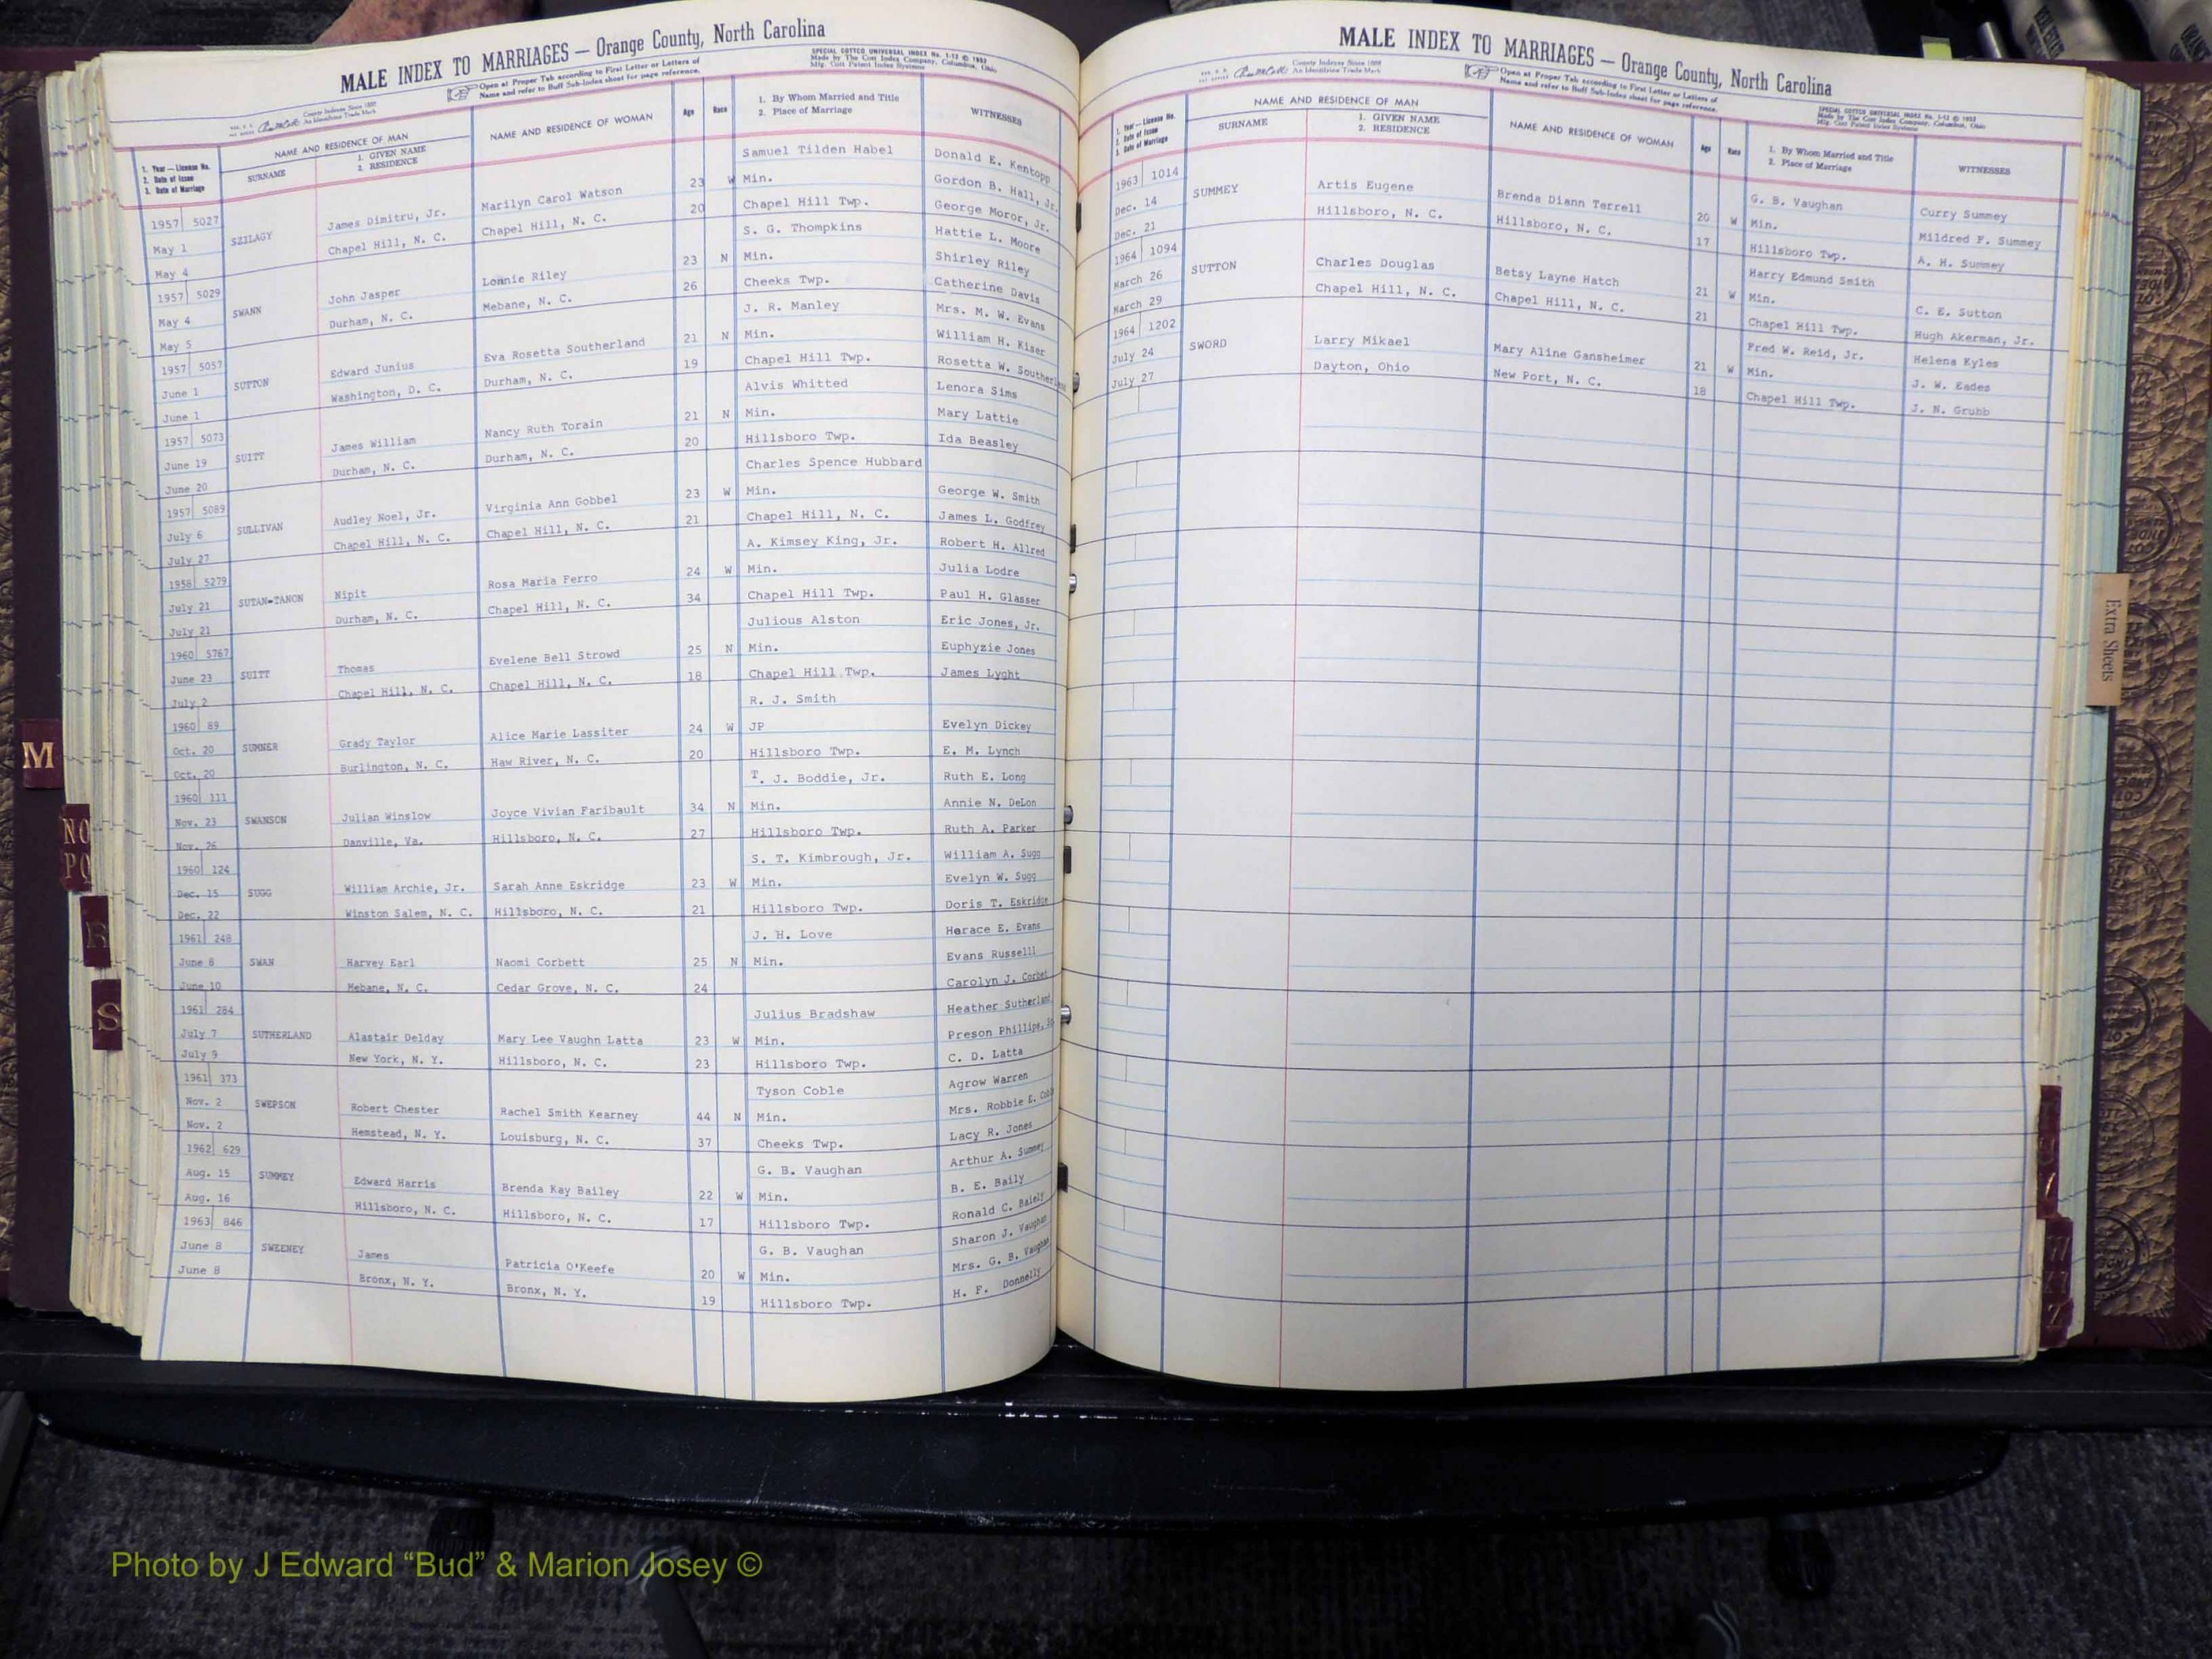 MALE INDEX TO MARRIAGES — Orange County, North Carolina
Open at Proper Tab according to First Letter or Letters of
Name and refer to Buff Sub-Index sheet for page reference.
SPECIAL COTTCO UNIVERSAL INDEX No. 1-12 © 1953
Made by The Cott Index Company, Columbus, Ohio
Mfg. Cott Patent Index Systems
County Indexes Since 1888
An Identifying Trade Mark
1. Year — License No.
2. Date of Issue
3. Date of Marriage
NAME AND RESIDENCE OF MAN
SURNAME
1. GIVEN NAME
2. RESIDENCE
NAME AND RESIDENCE OF WOMAN
Age
Race
1. By Whom Married and Title
2. Place of Marriage
WITNESSES
Samuel Tilden Habel Donald E. Kentopp
1957 5027 James Dimitru, Jr. Marilyn Carol Watson 23 W Min. Gordon B. Hall, Jr.
May 1 SZILAGY Chapel Hill, N. C. Chapel Hill, N. C. 20 Chapel Hill Twp. George Moror, Jr.
May 4 S. G. Thompkins Hattie L. Moore
1957 5029 John Jasper Lonnie Riley 23 N Min. Shirley Riley
May 4 SWANN Durham, N. C. Mebane, N. C. 26 Cheeks Twp. Catherine Davis
May 5 J. R. Manley Mrs. M. W. Evans
1957 5057 Edward Junius Eva Rosetta Southerland 21 N Min. William H. Kiser
June 1 SUTTON Washington, D. C. Durham, N. C. 19 Chapel Hill Twp. Rosetta W. Southerland
June 1 Alvis Whitted Lenora Sims
1957 5073 James William Nancy Ruth Torain 21 N Min. Mary Lattie
June 19 SUITT Durham, N. C. Durham, N. C. 20 Hillsboro Twp. Ida Beasley
June 20 Charles Spence Hubbard
1957 5089 Audley Noel, Jr. Virginia Ann Gobbel 23 W Min. George W. Smith
July 6 SULLIVAN Chapel Hill, N. C. Chapel Hill, N. C. 21 Chapel Hill, N. C. James L. Godfrey
July 27 A. Kimsey King, Jr. Robert H. Allred
1958 5279 Nipit Rosa Maria Ferro 24 W Min. Julia Lodre
July 21 SUTAN-TANON Durham, N. C. Chapel Hill, N. C. 34 Chapel Hill Twp. Paul H. Glasser
July 21 Julious Alston Eric Jones, Jr.
1960 5767 Thomas Evelene Bell Strowd 25 N Min. Euphyzie Jones
June 23 SUITT Chapel Hill, N. C. Chapel Hill, N. C. 18 Chapel Hill Twp. James Lyght
July 2 R. J. Smith
1960 89 Grady Taylor Alice Marie Lassiter 24 W JP Evelyn Dickey
Oct. 20 SUMNER Burlington, N. C. Haw River, N. C. 20 Hillsboro Twp. E. M. Lynch
Oct. 20 T. J. Boddie, Jr. Ruth E. Long
1960 111 Julian Winslow Joyce Vivian Faribault 34 N Min. Annie N. DeLon
Nov. 23 SWANSON Danville, Va. Hillsboro, N. C. 27 Hillsboro Twp. Ruth A. Parker
Nov. 26 S. T. Kimbrough, Jr. William A. Sugg
1960 124 William Archie, Jr. Sarah Anne Eskridge 23 W Min. Evelyn W. Sugg
Dec. 15 SUGG Winston Salem, N. C. Hillsboro, N. C. 21 Hillsboro Twp. Doris T. Eskridge
Dec. 22 J. H. Love Horace E. Evans
1961 248 Harvey Earl Naomi Corbett 25 N Min. Evans Russelll
June 8 SWAN Mebane, N. C. Cedar Grove, N. C. 24 Carolyn J. Corbet
June 10 Julius Bradshaw Heather Sutherland
1961 284 Alastair Delday Mary Lee Vaughn Latta 23 W Min. Preson Phillips,
July 7 SUTHERLAND New York, N. Y. Hillsboro, N. C. 23 Hillsboro Twp. C. D. Latta
July 9 Tyson Coble Agrow Warren
1961 373 Robert Chester Rachel Smith Kearney 44 N Min. Mrs. Robbie E. Coble
Nov. 2 SWEPSON Hemstead, N. Y. Louisburg, N. C. 37 Cheeks Twp. Lacy R. Jones
Nov. 2 G. B. Vaughan Arthur A. Summey
1962 629 Edward Harris Brenda Kay Bailey 22 W Min. B. E. Baily
Aug. 15 SUMMEY Hillsboro, N. C. Hillsboro, N. C. 17 Hillsboro Twp. Ronald C. Baiely
Aug. 16 G. B. Vaughan Sharon J. Vaughan
1963 846 James Patricia O'Keefe 20 W Min. Mrs. G. B. Vaughan
June 8 SWEENEY Bronx, N. Y. Bronx, N. Y. 19 Hillsboro Twp. H. F. Donnelly
June 8
MALE INDEX TO MARRIAGES — Orange County, North Carolina
County Indexes Since 1888
An Identifying Trade Mark
Open at Proper Tab according to First Letter or Letters of
Name and refer to Buff Sub-Index sheet for page reference.
SPECIAL COTTCO UNIVERSAL INDEX No. 1-12 © 1953
Made by The Cott Index Company, Columbus, Ohio
Mfg. Cott Patent Index Systems
1. Year — License No.
2. Date of Issue
3. Date of Marriage
NAME AND RESIDENCE OF MAN
SURNAME
1. GIVEN NAME
2. RESIDENCE
NAME AND RESIDENCE OF WOMAN
Age
Race
1. By Whom Married and Title
2. Place of Marriage
WITNESSES
1963 1014 Artis Eugene Brenda Diann Terrell G. B. Vaughan Curry Summey
Dec. 14 SUMMEY Hillsboro, N. C. Hillsboro, N. C. 20 W Min. Mildred F. Summey
Dec. 21 17 Hillsboro Twp. A. H. Summey
1964 1094 Charles Douglas Betsy Layne Hatch Harry Edmund Smith
March 26 SUTTON Chapel Hill, N. C. Chapel Hill, N. C. 21 W Min. C. E. Sutton
March 29 21 Chapel Hill Twp. Hugh Akerman, Jr.
1964 1202 Larry Mikael Mary Aline Gansheimer Fred W. Reid, Jr. Helena Kyles
July 24 SWORD Dayton, Ohio New Port, N. C. 21 W Min. J. W. Eades
July 27 18 Chapel Hill Twp. J. N. Grubb
Extra Sheets
M
NO
PQ
R
S
W
Z
Photo by J Edward “Bud” & Marion Josey ©